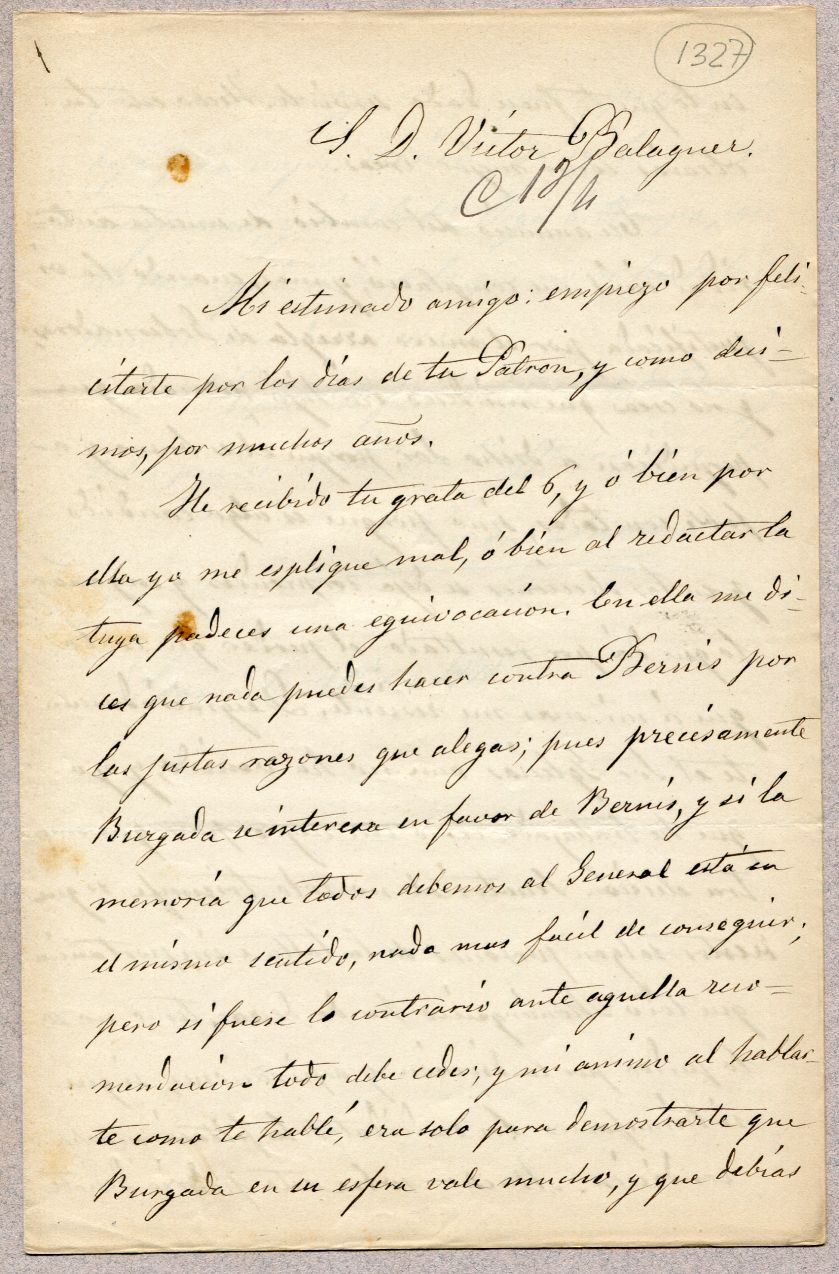 1327
S. D. Víctor Balaguer.
C 13/4
Mi estimado amigo: empiezo por feli-
citarte por los días de tu Patron, y como deci-
mos, por muchos años.
He recibido tu grata del 6, y ó bien por
ella yo me esplique mal, ó bien al redactar la
tuya padeces una equivocacion. En ella me di-
ces que nada puedes hacer contra Bernis por
las justas razones que alegas; pues precisamente
Burgada se interesa en favor de Bernis, y si la
memoria que todos debemos al General está en
el mismo sentido, nada mas facil de conseguir;
pero si fuese lo contrario ante aquella reco-
mendacion todo debe ceder, y mi animo al hablar-
te como te hablé, era solo para demostrarte que
Burgada en su esfera vale mucho, y que debías